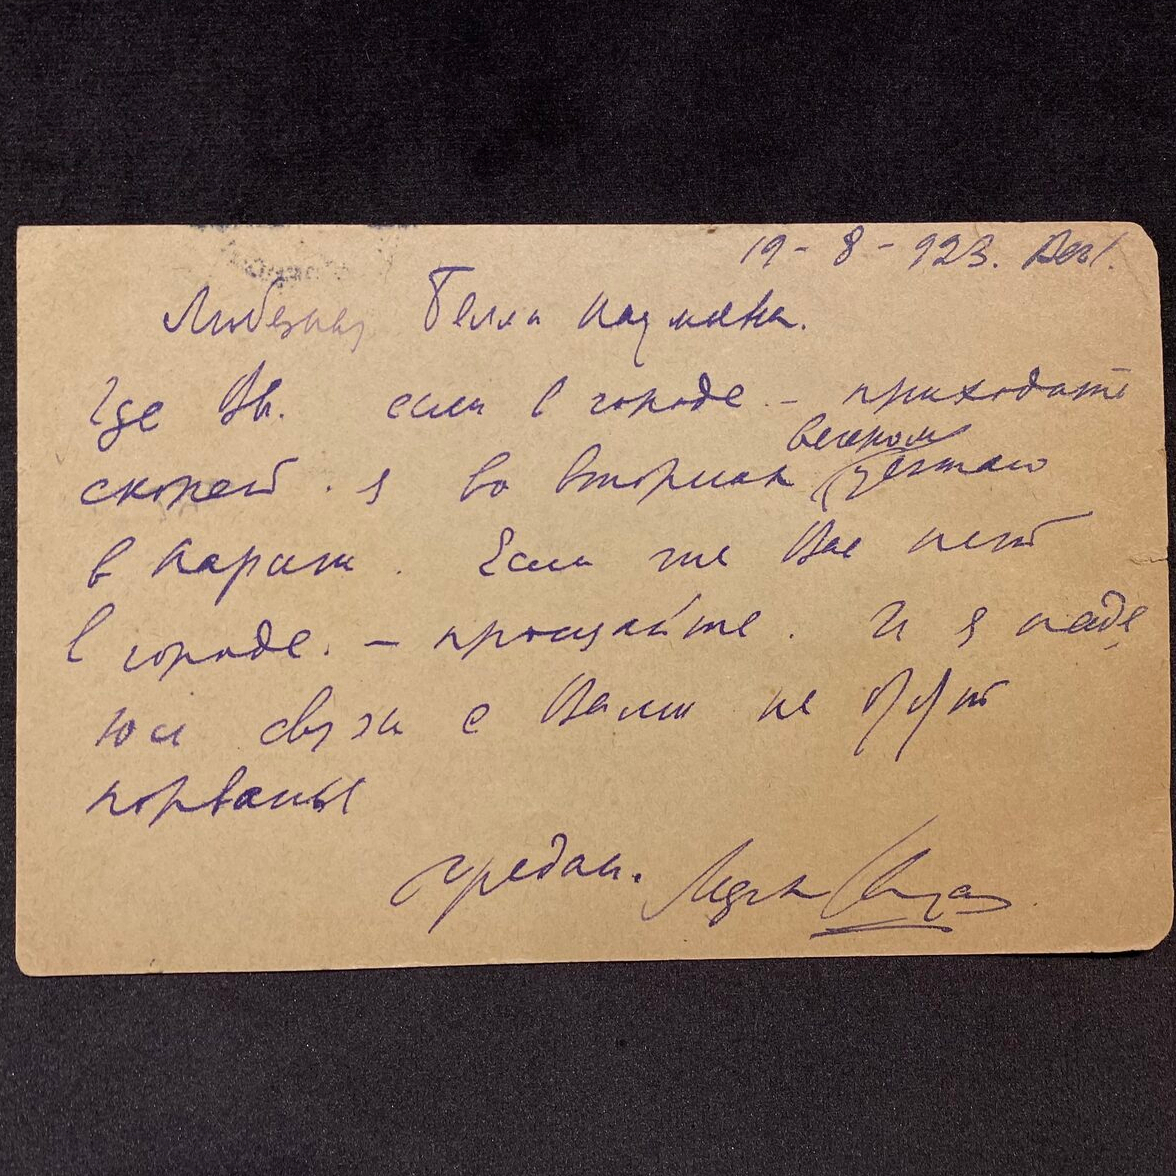 19-8-923.
Любезная Белла Наумовна.
Где Вы. если в городе - приходите
вечером
скорей. я во вторник уезжаю
в Париж. Если же Вас нет
в городе. - прощайте. И я наде
юсь связи с Вами не будут
порваны
предан.